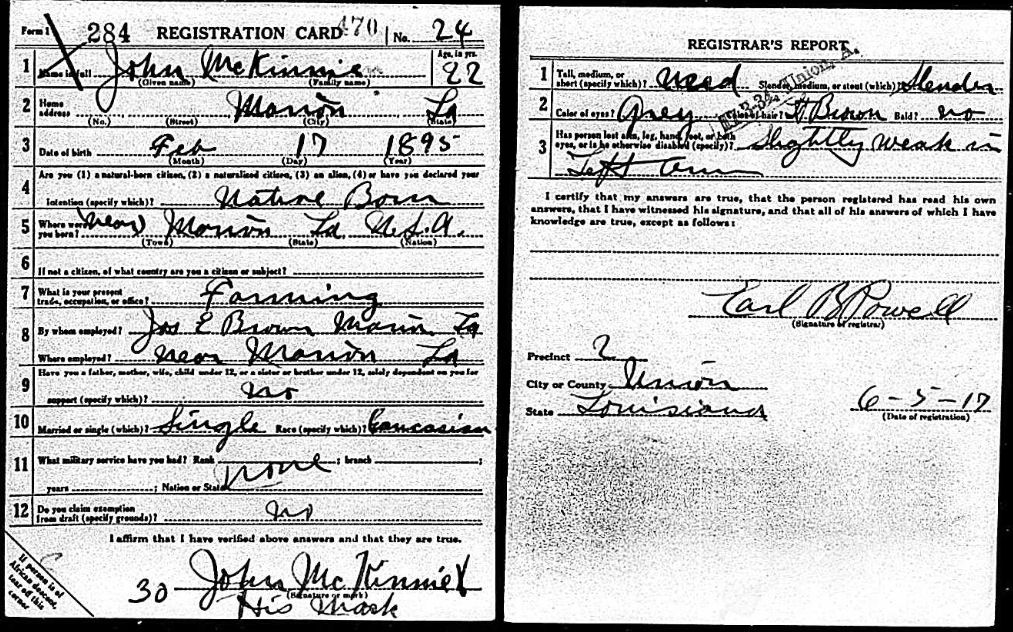 Form 1 284 REGISTRATION CARD 470 No. 24
1 Name in full John McKinnie 22
(Given name) (Family name) Age, in yrs.
2 Home address Marion La
(No.) (Street) (City) (State)
3 Date of birth Feb 17 1895
(Month) (Day) (Year)
Are you (1) a natural-born citizen, (2) a naturalized citizen, (3) an alien, (4) or have you declared your
4 intention (specify which)? Native Born
5 Where were you born? near Marion La U.S.A.
(Town) (State) (Nation)
6 If not a citizen, of what country are you a citizen or subject?
7 What is your present trade, occupation, or office? Farming
8 By whom employed? Jos E Brown Marion La
Where employed? near Marion La
Have you a father, mother, wife, child under 12, or a sister or brother under 12, solely dependent on you for
9 support (specify which)? no
10 Married or single (which)? Single Race (specify which)? Caucasian
11 What military service have you had? Rank none ; branch ;
years ; Nation or State
12 Do you claim exemption from draft (specify grounds)? no
I affirm that I have verified above answers and that they are true.
30 John McKinnie X
(Signature or mark)
His Mark
If person is of
African descent,
tear off this
corner
REGISTRAR'S REPORT
1 Tall, medium, or short (specify which)? Med Slender, medium, or stout (which)? Slender
2 Color of eyes? Grey Color of hair? Lt Brown Bald? no
3 Has person lost arm, leg, hand, foot, or both eyes, or is he otherwise disabled (specify)? Slightly weak in
Left arm
I certify that my answers are true, that the person registered has read his own
answers, that I have witnessed his signature, and that all of his answers of which I have
knowledge are true, except as follows:
Earl B Powell
(Signature of registrar)
Precinct 2
City or County Union
State Louisiana 6-5-17
(Date of registration)